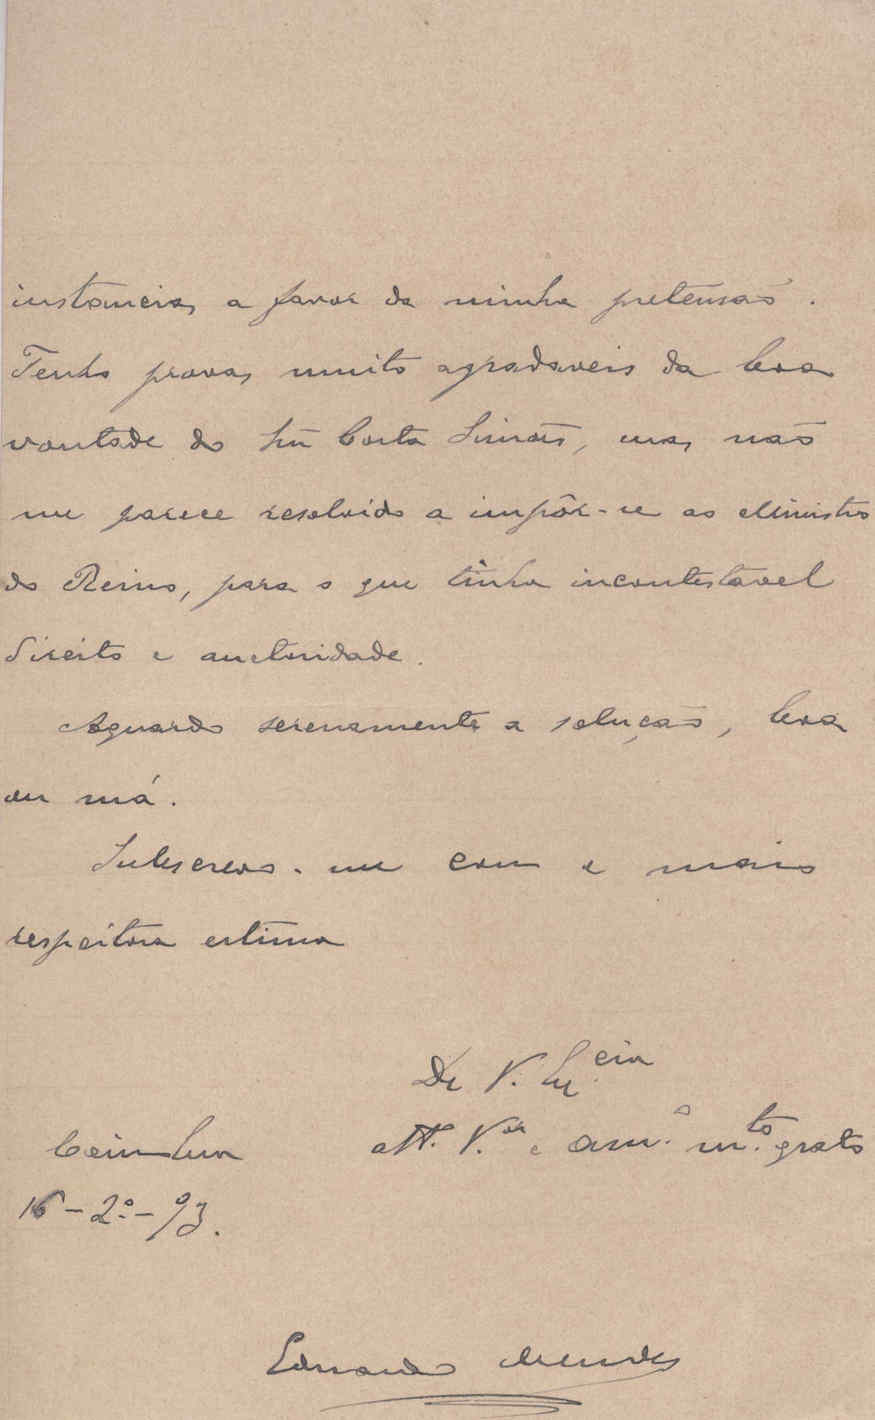 instancias a favor da minha pretensão.
Tenho provas muito agradaveis da boa
vontade do Snr Costa Simões, mas não
me parece resolvido a impôr-se ao Ministro
do Reino, para o que tinha incontestavel
direito e auctoridade.
Aguardo serenamente a solução, boa
ou má.
Subscrevo-me com a mais
respeitosa estima
De V. Ex.cia
att. V.or e am.o m.to grato
Coimbra
16-2º-93.
Eduardo Mendes